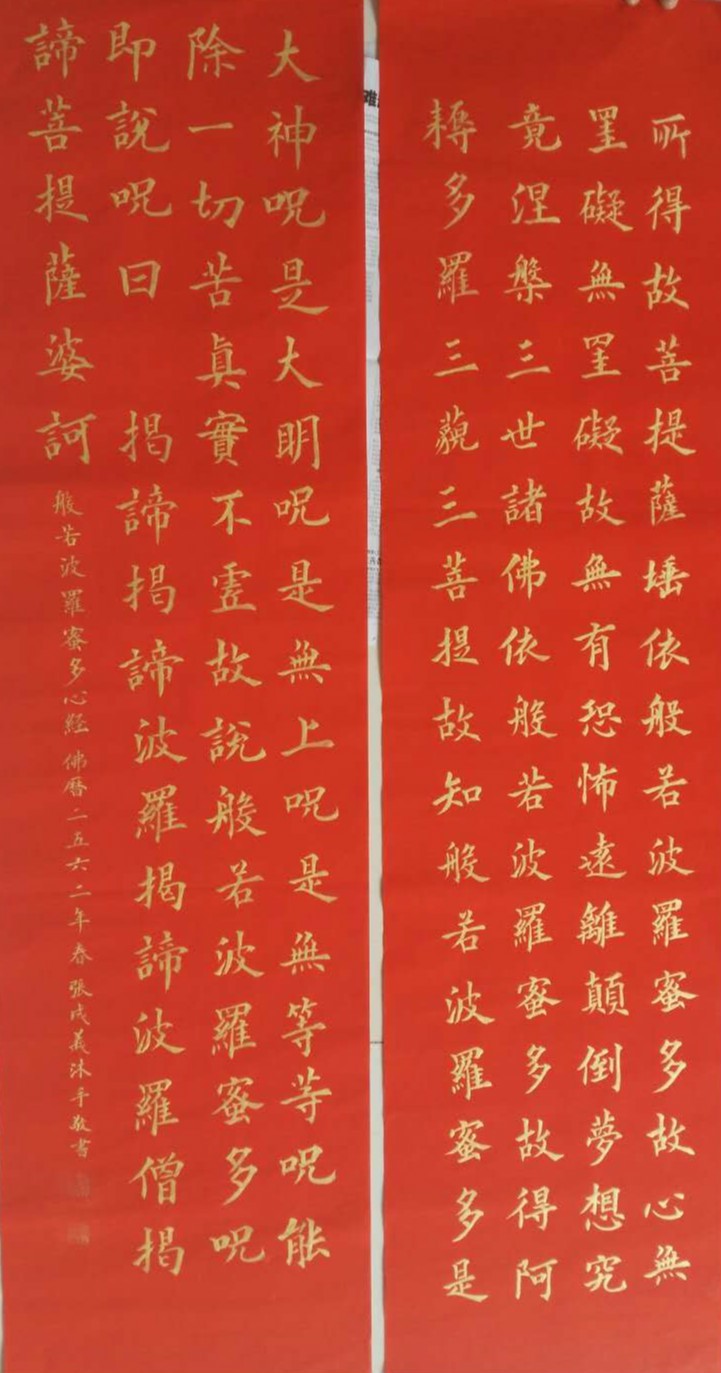 所得故菩提薩埵依般若波羅蜜多故心無
罣礙無罣礙故無有恐怖遠離顛倒夢想究
竟涅槃三世諸佛依般若波羅蜜多故得阿
耨多羅三藐三菩提故知般若波羅蜜多是
大神呪是大明呪是無上呪是無等等呪能
除一切苦真實不虛故說般若波羅蜜多呪
即說呪曰 揭諦揭諦波羅揭諦波羅僧揭
諦菩提薩婆訶
般若波羅蜜多心經 佛曆二五六二年春 張成義沐手敬書